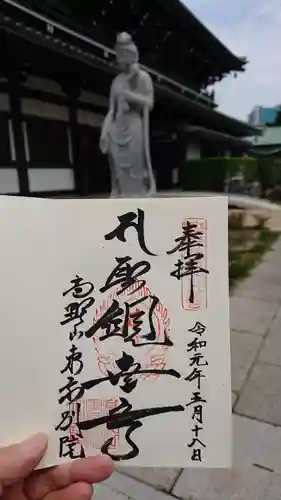 奉拝
令和元年五月十八日
聖観世音
高野山東京別院